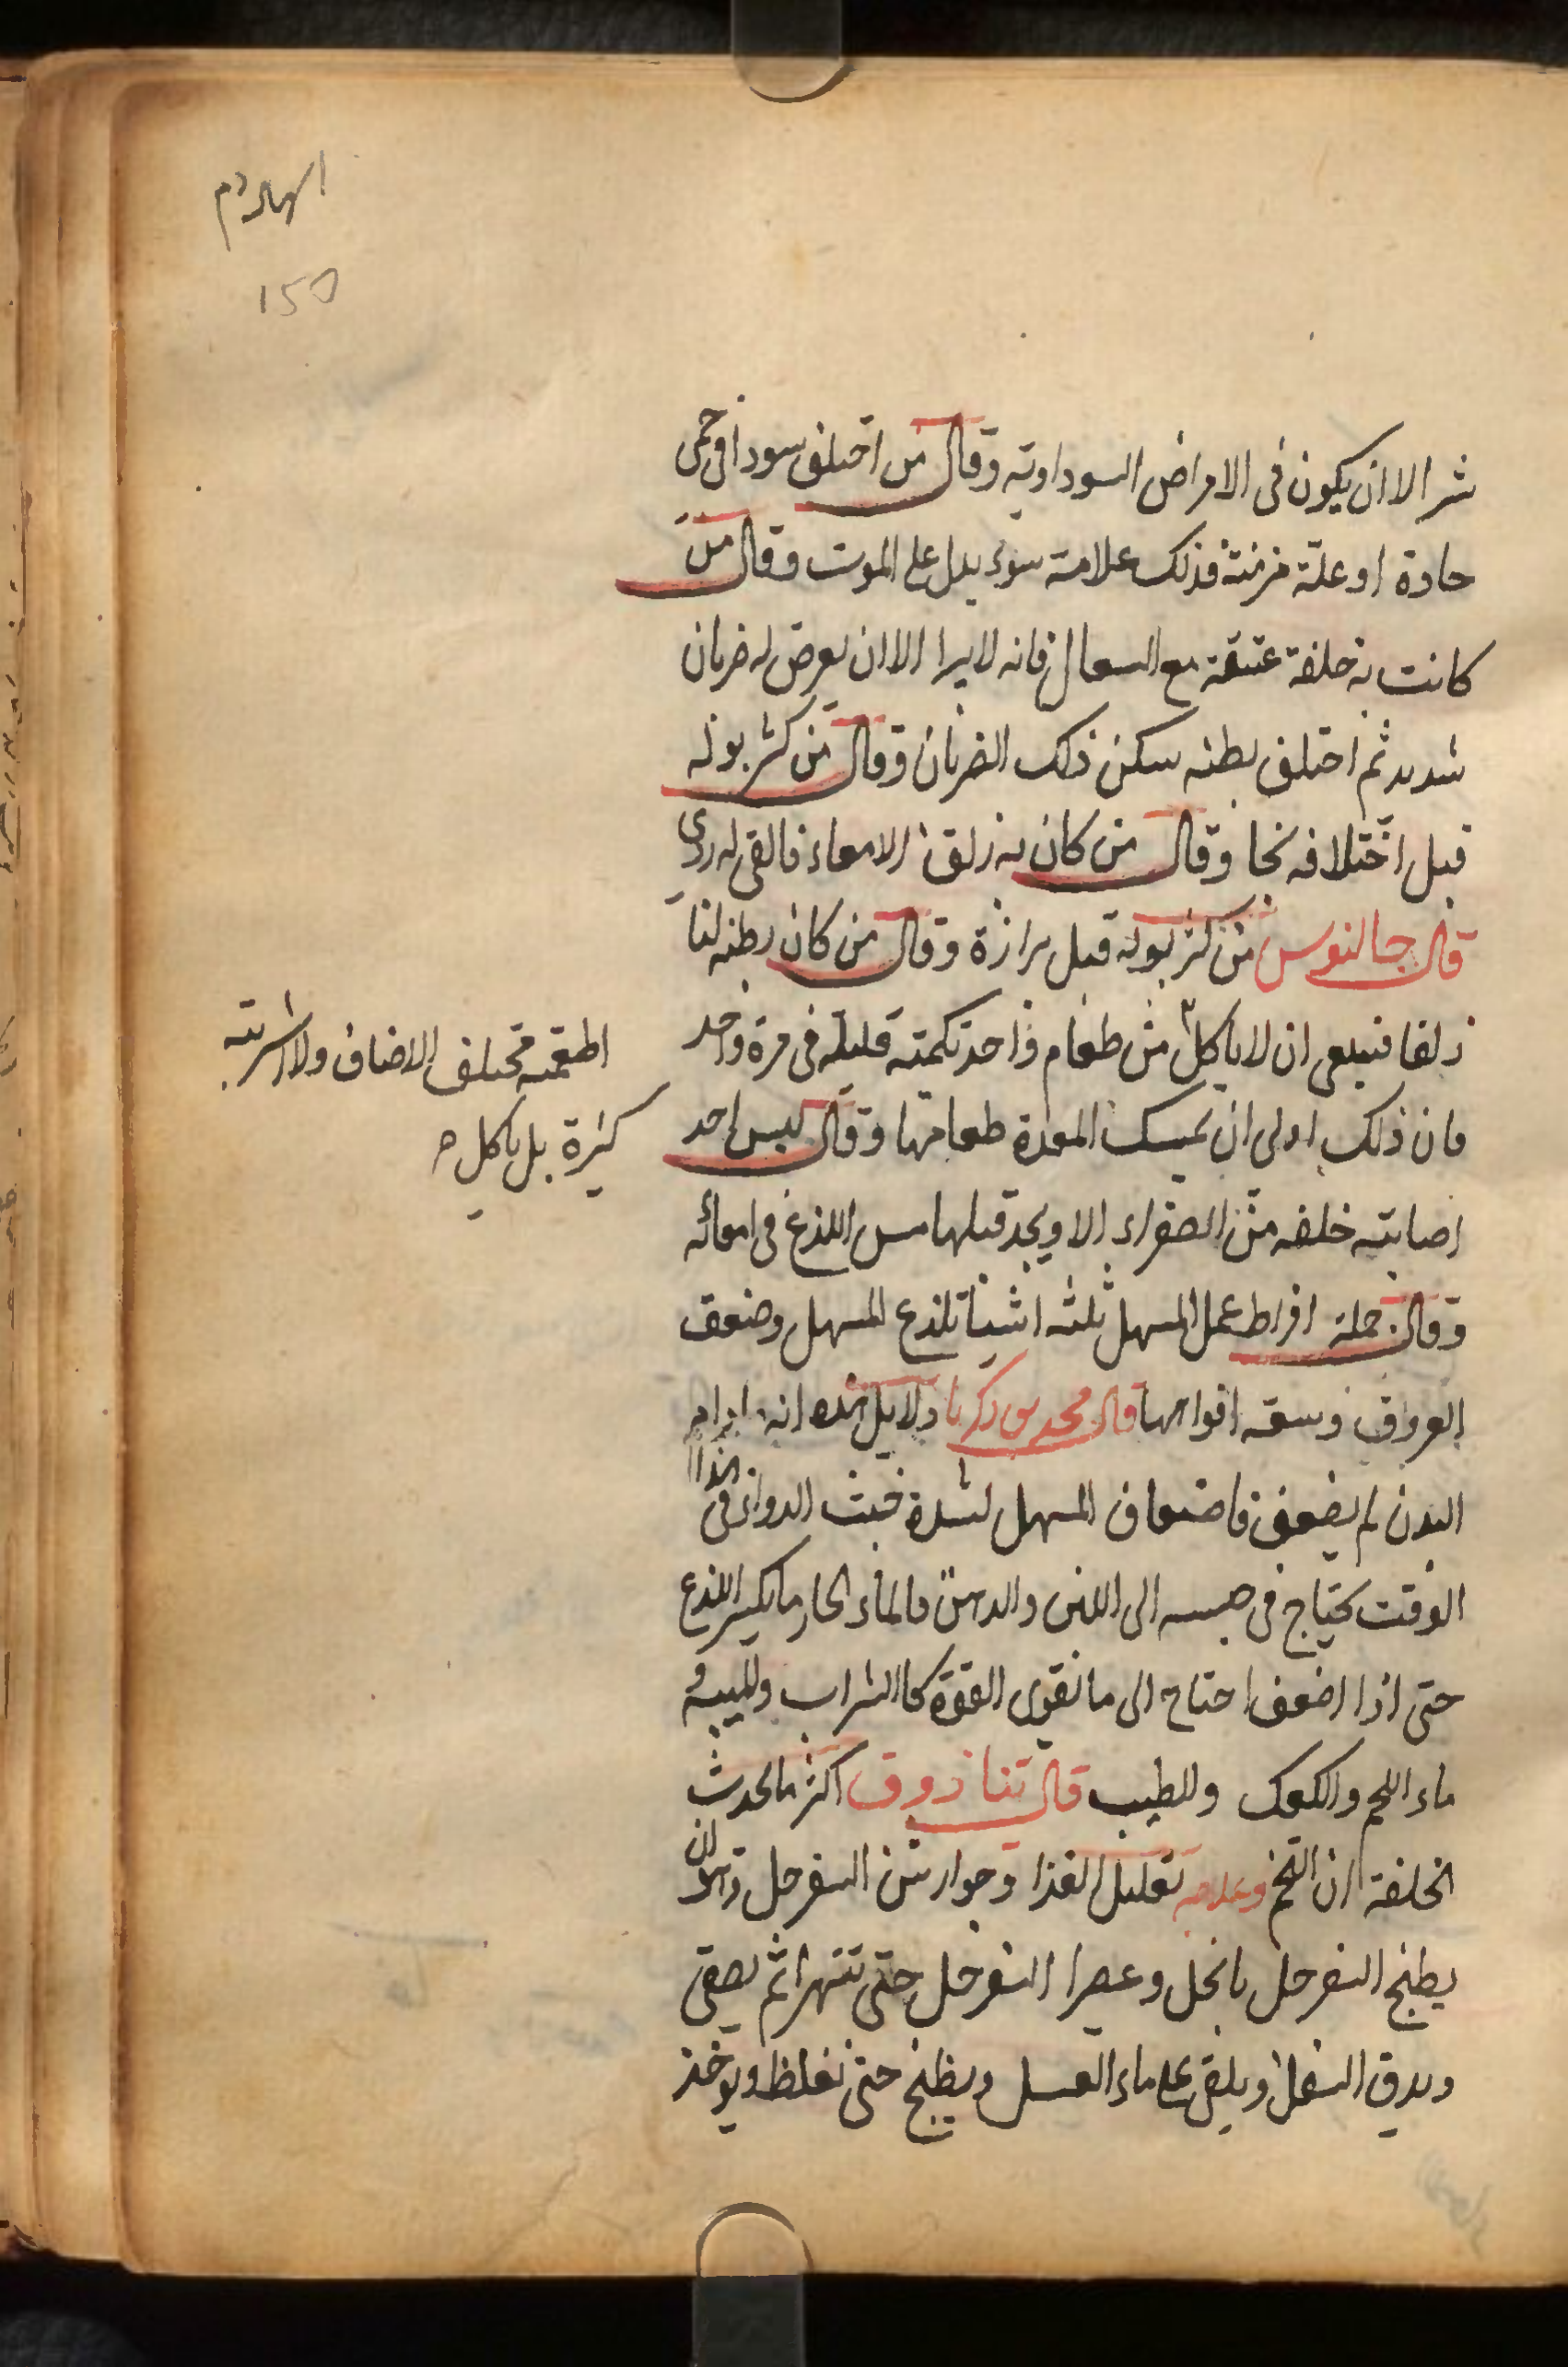 شر الا ان يكون فى الامراض السوداويه وقال من اختلف سودا فى حمى
حادة او علة مزمنة فذلك علامة سوء يدل على الموت وقال من
كانت به خلفة عتيقة مع السعال فانه لا يبرا الا ان يعرض له ضربان
شديد ثم اختلف بطنه سكن ذلك الضربان وقال من كثر بوله
قبل اختلافه نجا وقال من كان به زلق الامعاء فالقى له ردي
قال جالنوس من كثر بوله قبل برازة وقال من كان بطنه لنا
زلقا فينبغى ان لا ياكل من طعام واحد تكمته قليلة فى مرة واحد
اطعمة مختلف الاضاف ولا اشربته
كثيرة بل ياكل
فان ذلك اولى ان يمسك المعدة طعامها وقال ليس احد
اصابته خلفه من الصفراء الا ويجد قبلها مس اللذع فى امعائه
وقال جملة افراط عمل المسهل ثلثه اشيا تلذع المسهل وضعف
العروق وسعة افواهها قال محمد بن زكريا دلايل هذه انه
البدن لم يضعف فاضعاف المسهل لشدة خبث الدواء فى هذا
الوقت يحتاج فى حبسه الى اللبن والدهن فالماء الحار ما يكسر اللذع
حتى اذا اضعف احتاج الى ما يقوى القوة كالشراب والميبه و
ماء اللحم والكعك والطيب قال تناذوق اكثر ما يحدث
الخلفة ان التخم وعلاجه تقليل الغذا وجوارشن السفرجل وهو ان
يطبخ السفرجل بالخل وعصرا السفرجل حتى تتهرا ثم يصفى
ويدق السفل ويلقى على ماء العسل ويطبخ حتى تغلظ ويوخذ
150